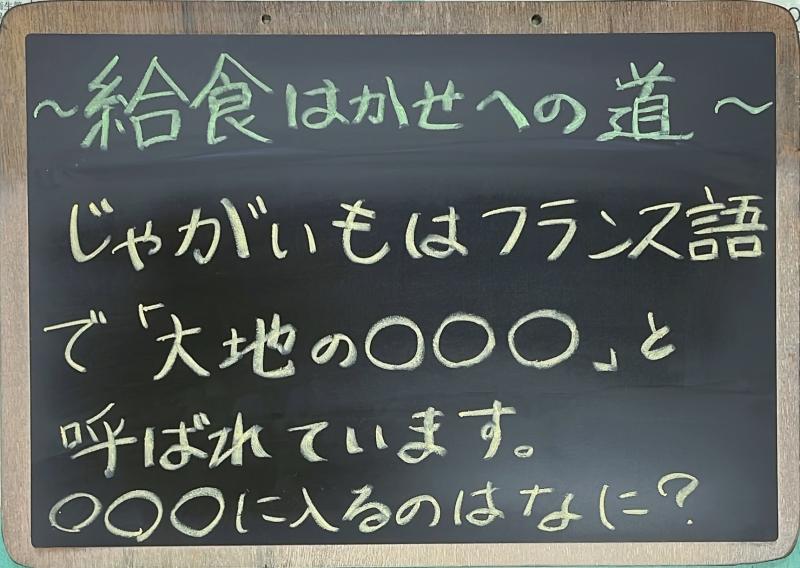 ～給食はかせへの道～
じゃがいもはフランス語
で「大地の〇〇〇」と
呼ばれています。
〇〇〇に入るのはなに?